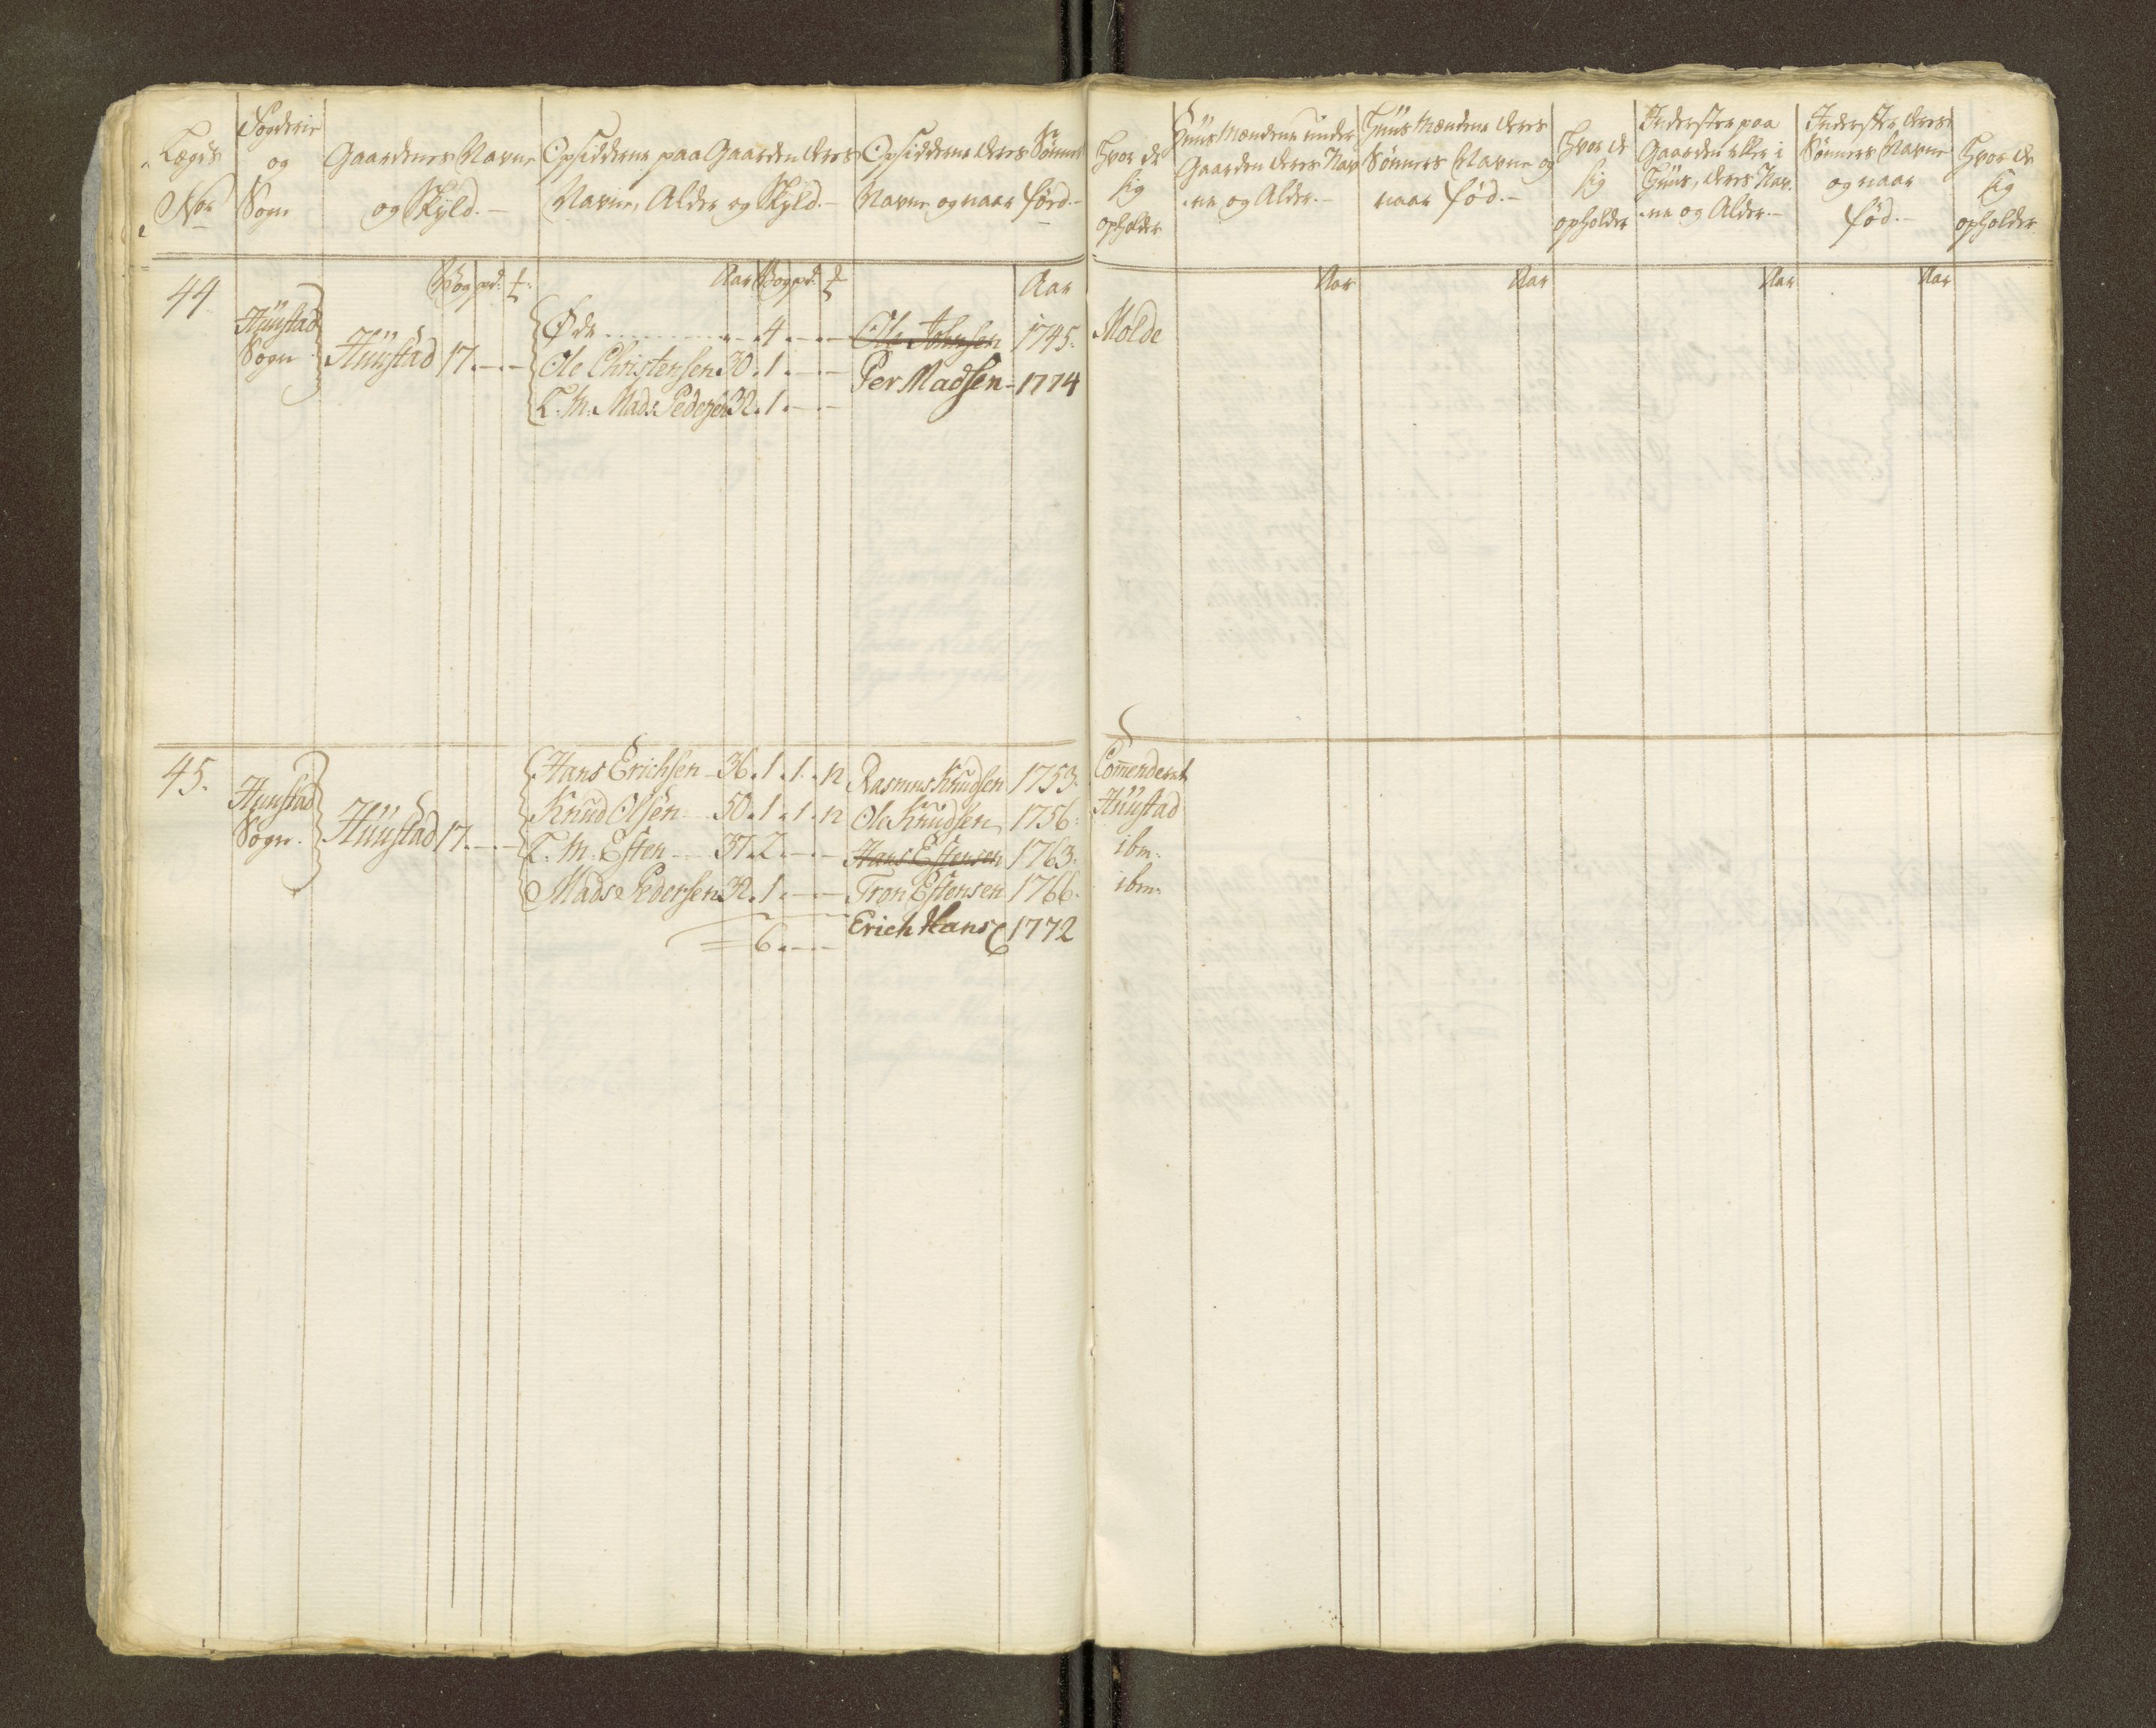 Lægds No
Fogderie og Sogn
Gaardenes Navne og Skyld.-
Opsidderne paa Gaarden deres Navne, Alder og Skyld.-
Opsidderne deres Sønner Navne og naar fød.-
Hvor de sig opholder
Huus Mændene under Gaarden deres Navne og Alder.-
Huus Mændene deres Sønners Navne og naar fød.-
Hvor de sig opholder
Inderster paa Gaarden eller i Huus, deres Navne og Alder.-
Inderster deres Sønners Navne og naar fød.-
Hvor de sig opholder
Vog pd. Aar Vog pd. Aar Aar Aar Aar Aar
44
Huustad Sogn
Huustad 17.
Øde 4. Ole Johnsen 1745. Molde
Ole Christensen 30. 1. Per Madsen - 1774
T. M. Mads Pedersen 32. 1.
45.
Huustad Sogn.
Huustad 17.
Hans Erichsen - 36. 1. 1. 12 Rasmus Knudsen 1753. Comenderet
Knud Olsen 50. 1. 1. 12 Ole Knudsen 1756. Huustad
T. M. Esten 37. 2. Hans Estensen 1763. ibm.
Mads Pedersen 32. 1. Tron Estensen 1766. ibm.
6. Erich Hans 1772